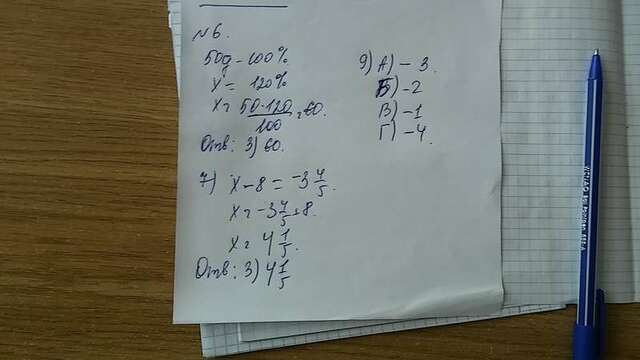 №6.
50g - 100%
x = 120%
x = 50·120/100 = 60.
Отв: 3) 60.
7) x - 8 = -3 4/5
x = -3 4/5 + 8
x = 4 1/5.
Отв: 3) 4 1/5
9) А) - 3.
Б) - 2
В) - 1
Г) - 4.